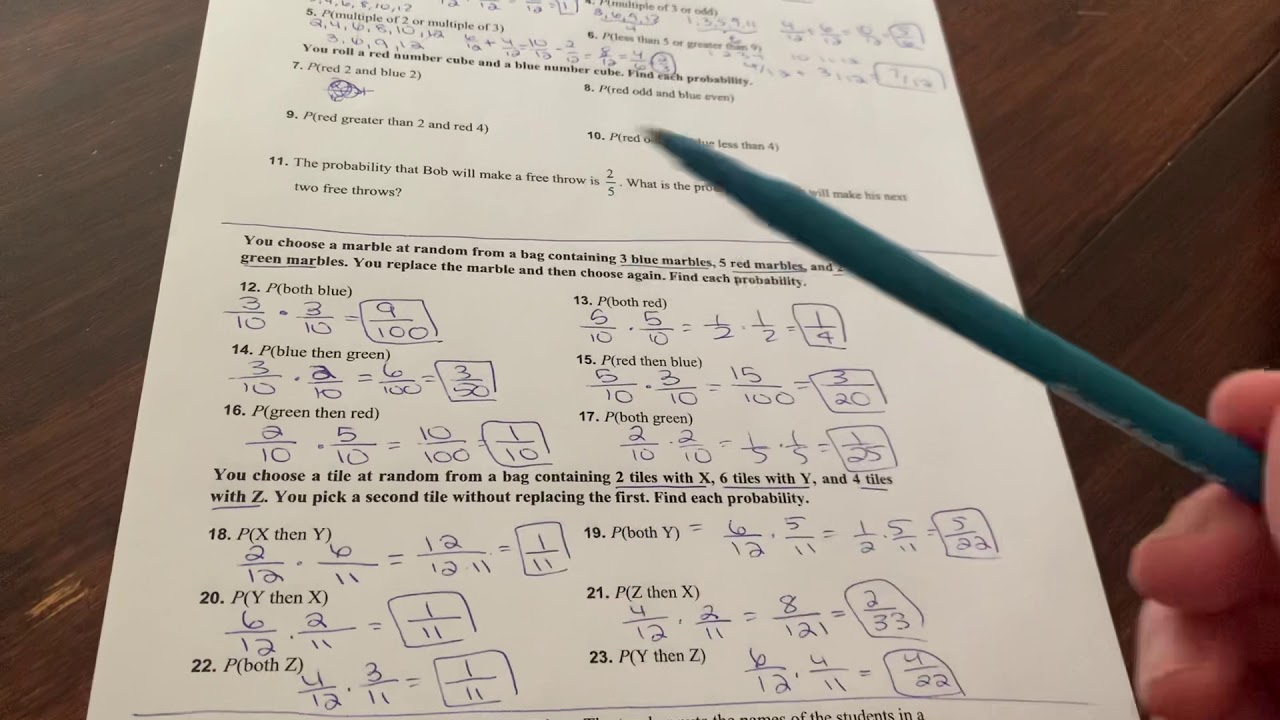 4. P(multiple of 3 or odd)
5. P(multiple of 2 or multiple of 3)
2, 4, 6, 8, 10, 12
3, 6, 9, 12
6/12 + 4/12 = 10/12 - 2/12 = 8/12 = 4/6 2/3
6. P(less than 5 or greater than 9)
4/12 + 3/12 = 7/12
You roll a red number cube and a blue number cube. Find each probability.
7. P(red 2 and blue 2)
8. P(red odd and blue even)
9. P(red greater than 2 and red 4)
10. P(red less than 4)
11. The probability that Bob will make a free throw is 2/5. What is the will make his next
two free throws?
You choose a marble at random from a bag containing 3 blue marbles, 5 red marbles, and
green marbles. You replace the marble and then choose again. Find each probability.
12. P(both blue)
3/10 · 3/10 = 9/100
13. P(both red)
5/10 · 5/10 = 1/2 · 1/2 = 1/4
14. P(blue then green)
3/10 · 2/10 = 6/100 = 3/50
15. P(red then blue)
5/10 · 3/10 = 15/100 = 3/20
16. P(green then red)
2/10 · 5/10 = 10/100 = 1/10
17. P(both green)
2/10 · 2/10 = 1/5 · 1/5 = 1/25
You choose a tile at random from a bag containing 2 tiles with X, 6 tiles with Y, and 4 tiles
with Z. You pick a second tile without replacing the first. Find each probability.
18. P(X then Y)
2/12 · 6/11 = 12/12·11 = 1/11
19. P(both Y) = 6/12 · 5/11 = 1/2 · 5/11 = 5/22
20. P(Y then X)
6/12 · 2/11 = 1/11
21. P(Z then X)
4/12 · 2/11 = 8/121 = 2/33
22. P(both Z)
4/12 · 3/11 = 1/11
23. P(Y then Z)
6/12 · 4/11 = 4/22
the names of the students in a